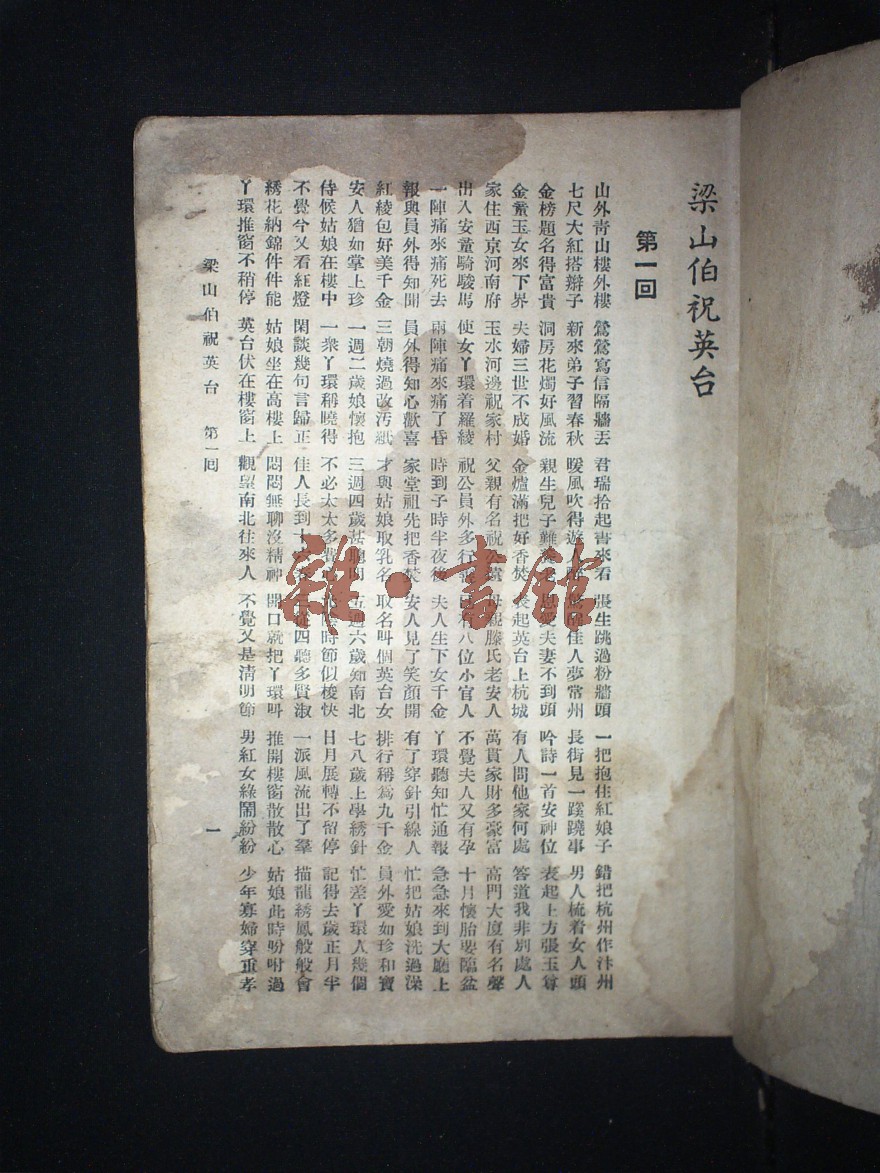 梁山伯祝英台
第一回
山外青山樓外樓 鶯鶯寫信隔牆丟 君瑞拾起書來看 張生跳過粉牆頭 一把抱住紅娘子 錯把杭州作汴州
七尺大紅搭辮子 新來弟子習春秋 暖風吹得遊 佳人夢常州 長街見一蹊蹺事 男人梳着女人頭
金榜題名得富貴 洞房花燭好風流 親生兒子難 恩愛夫妻不到頭 吟詩一首安神位 表起上方張玉尊
金童玉女來下界 夫婦三世不成婚 金爐滿把好香焚 表起英台上杭城 有人問他家何處 答道我非別處人
家住西京河南府 玉水河邊祝家村 父親有名祝公遠 母親滕氏老安人 萬貫家財多豪富 高門大廈有名聲
出入安童騎駿馬 使女丫環着羅綾 祝公員外多行善 已有八位小官人 不覺夫人又有孕 十月懷胎要臨盆
一陣痛來痛死去 兩陣痛來痛了昏 時到子時半夜後 夫人生下女千金 丫環聽知忙通報 急急來到大廳上
報與員外得知聞 員外得知心歡喜 家堂祖先把香焚 安人見了笑顏開 有了穿針引線人 忙把姑娘洗過澡
紅綾包好美千金 三朝燒過改汚紙 才與姑娘取乳名 取名叫個英台女 排行稱爲九千金 員外愛如珍和寶
安人猶如掌上珍 一週二歲娘懷抱 三週四歲甚聰明 五週六歲知南北 七八歲上學綉針 忙差丫環人幾個
侍候姑娘在樓中 一衆丫環稱曉得 不必太太多費心 時節似梭快 日月展轉不留停 記得去歲正月半
不覺今又看紅燈 閑談幾句言歸正 佳人長到十六 三從四聽多賢淑 一派風流出了羣 描龍綉鳳般般會
綉花納錦件件能 姑娘坐在高樓上 悶悶無聊沒精神 開口就把丫環叫 推開樓窗散散心 姑娘此時吩咐過
丫環推窗不稍停 英台伏在樓窗上 觀望南北往來人 不覺又是清明節 男紅女綠鬧紛紛 少年寡婦穿重孝
梁山伯祝英台 第一回
一
雜·書館